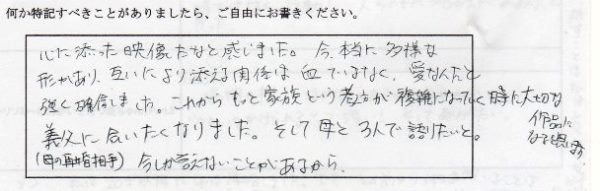 何か特記すべきことがありましたら、ご自由にお書きください。
心に添った映像だなと感じました。今、本当に多様な
形があり、互いにより添える関係は血ではなく、愛なんだと
強く確信しました。これからもっと家族という考え方が複雑になっていく時に大切な
作品になると思います
義父に会いたくなりました。そして母と3人で語りたいと。
(母の再婚相手) 今しか言えないことがあるから。